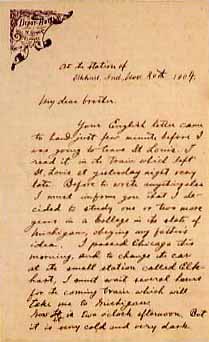 At the station of
Elkhart, Ind., Nov. 20th, 1904.
My dear brother.
Your English letter came
to hand just few minute before I
was going to leave St Louis. I
read it in the train which left
St Louis at yesterday night very
late. Before to write anything else
I must inform you that I de-
cided to study one or two more
years in a college in the state of
Michigan, obeying my father's
idea. I passed Chicago this
morning, and to change the car
at the small station called Elk-
hart, I must wait several hours
for the coming train which will
take me to Michigan.
Now it is two o'clock afternoon. But
it is very cold and very dark.